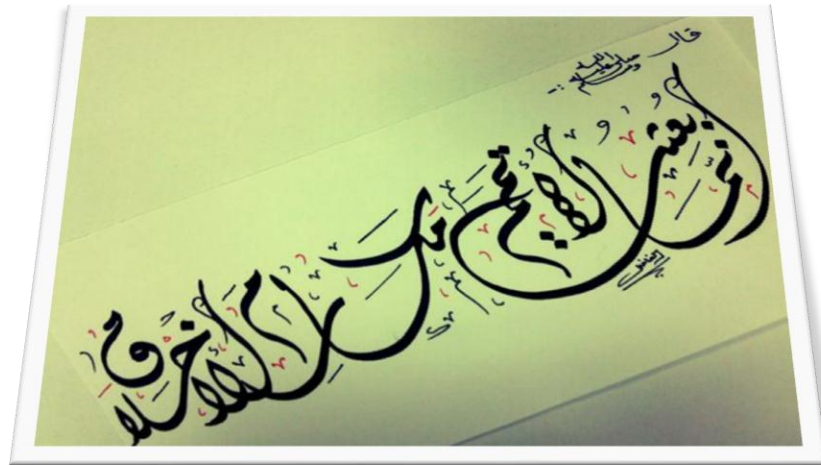 قال صلى الله عليه وسلم :
إنما بعثت لأتمم مكارم الأخلاق